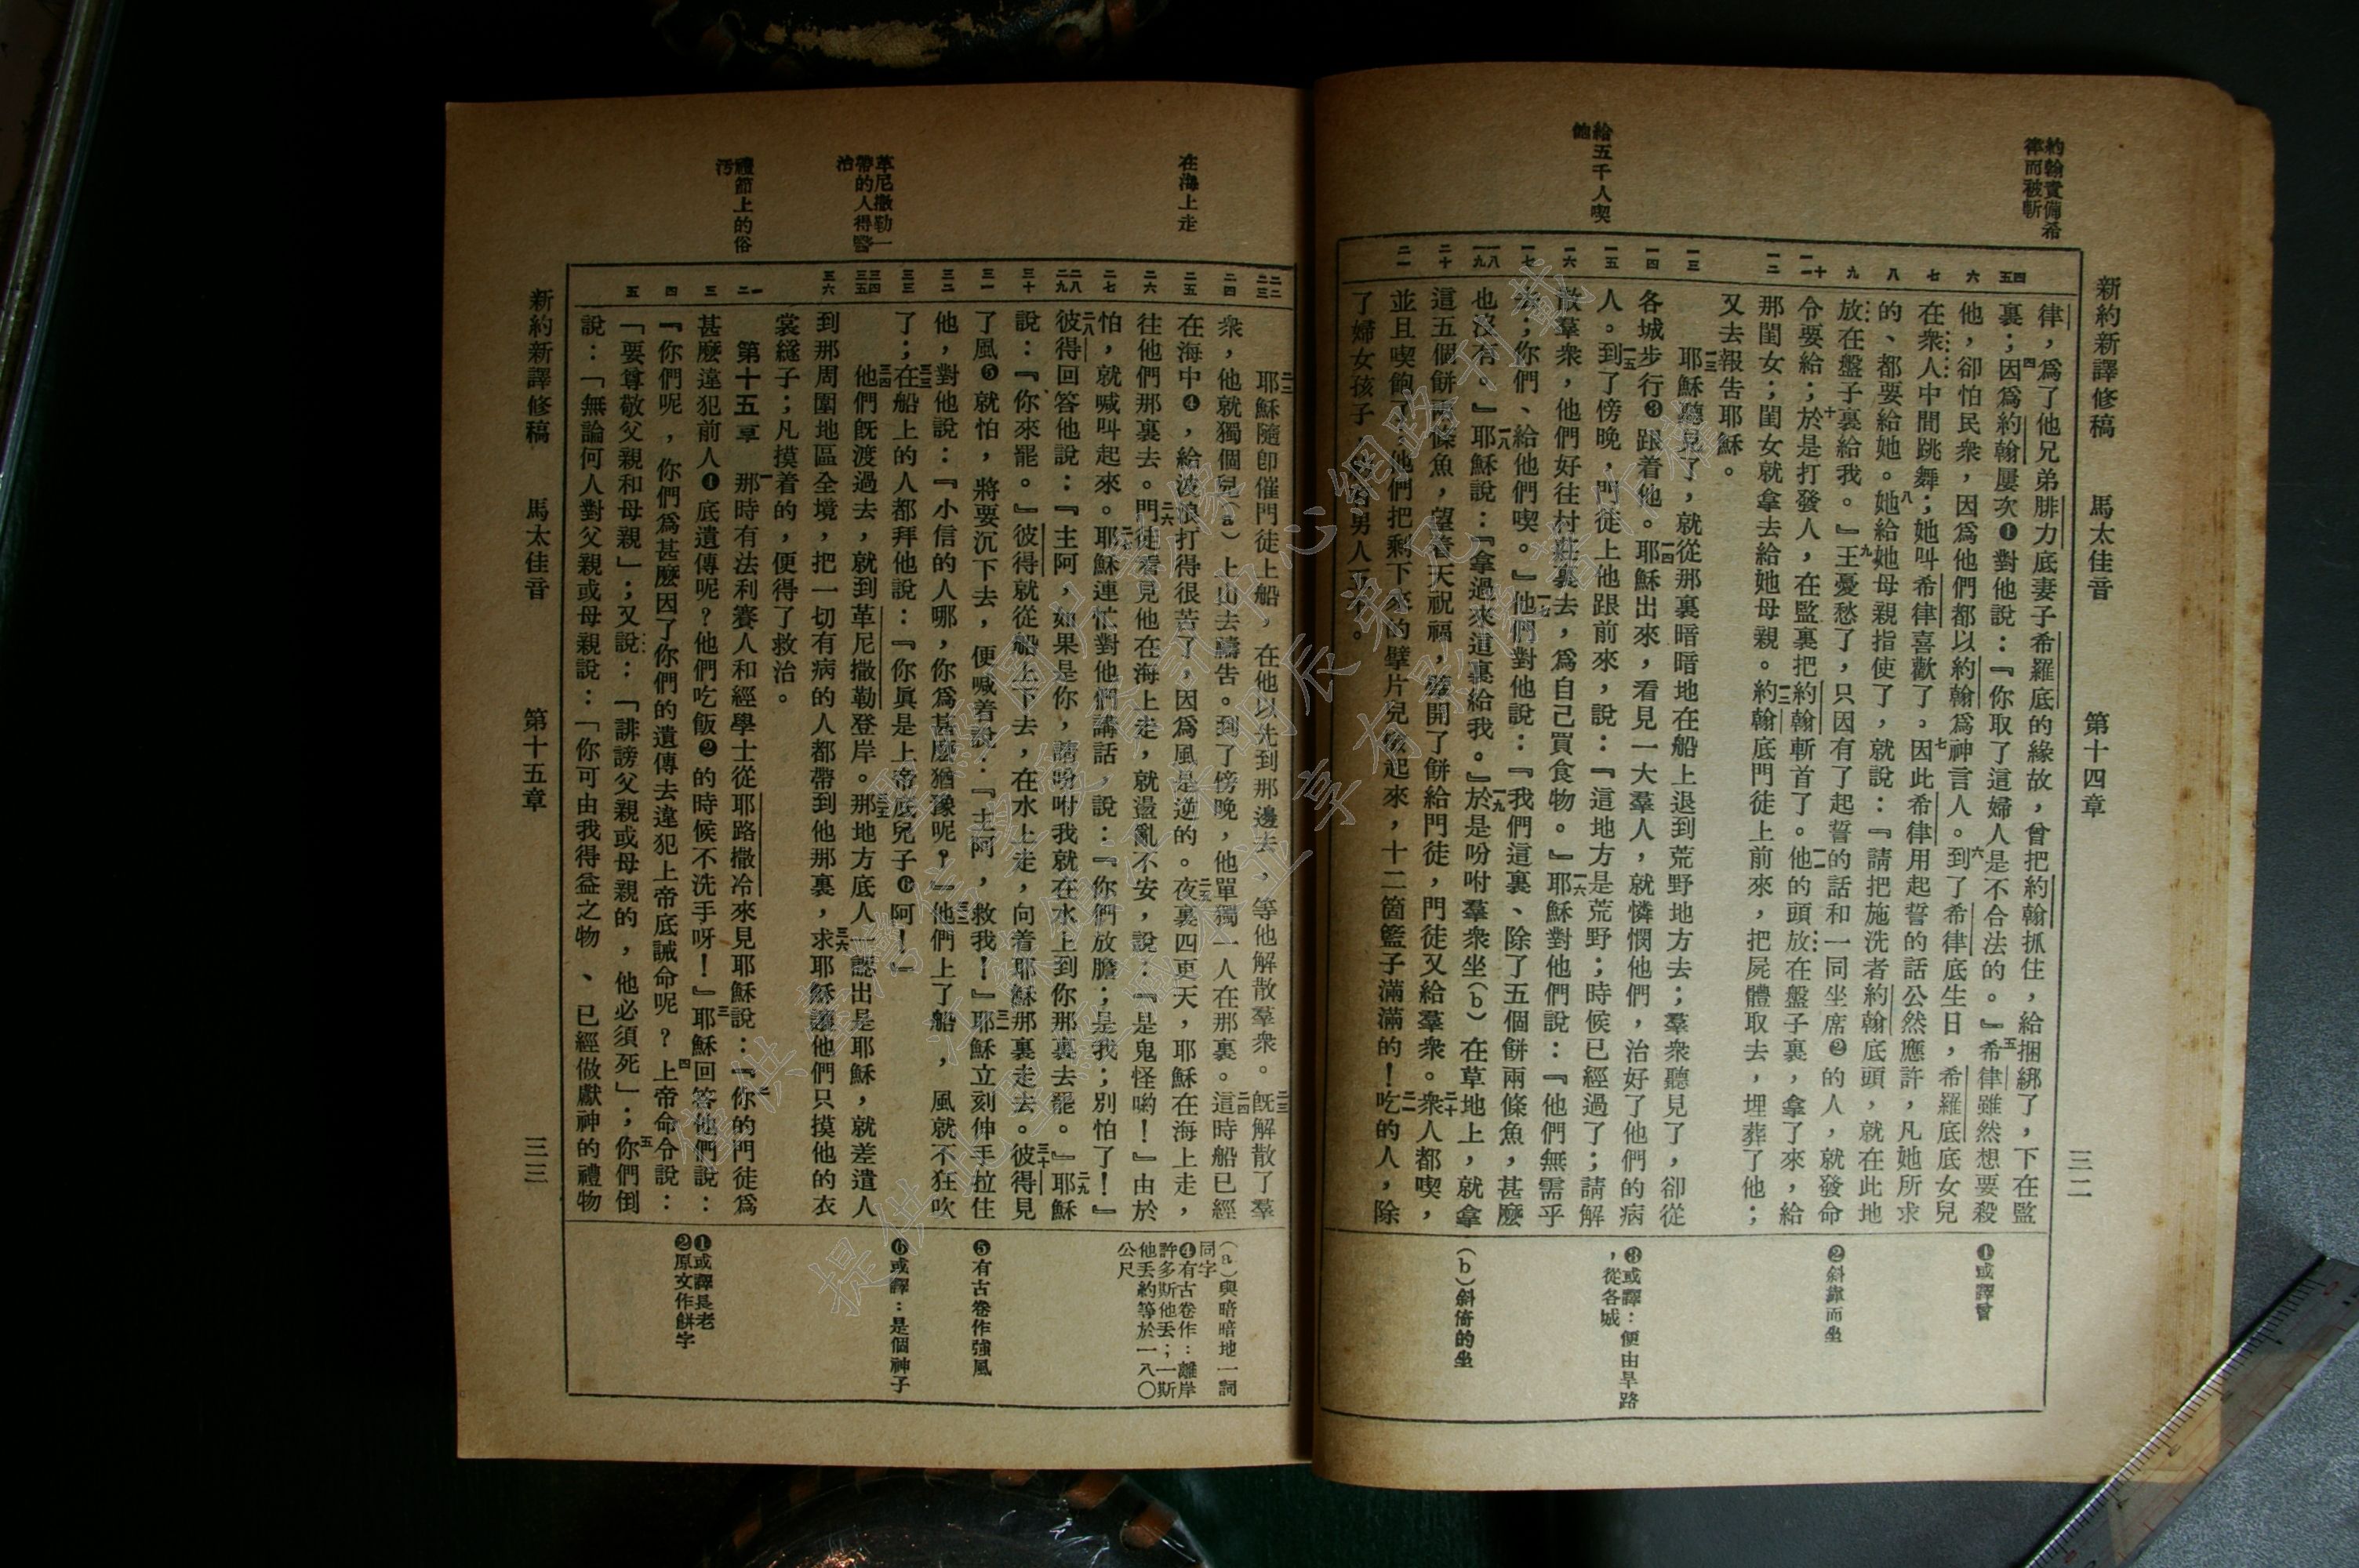 新約新譯修稿　馬太佳音　第十四章　三二
約翰責備希
律而被斬
給五千人喫
飽
四五
六
七
八
九
十
一一
一二
一三
一四
一五
一六
一七
一八
一九
二十
二一
律，爲了他兄弟腓力底妻子希羅底的緣故，曾把約翰抓住，給捆綁了，下在監
裏；四因爲約翰屢次❶對他說：『你取了這婦人是不合法的。』五希律雖然想要殺
他，卻怕民衆，因爲他們都以約翰爲神言人。六到了希律底生日，希羅底底女兒
在衆人中間跳舞；她叫希律喜歡了。七因此希律用起誓的話公然應許，凡她所求
的、都要給她。八她給她母親指使了，就說：『請把施洗者約翰底頭，就在此地
放在盤子裏給我。』九王憂愁了，只因有了起誓的話和一同坐席❷的人，就發命
令要給；十於是打發人，在監裏把約翰斬首了。一一他的頭放在盤子裏，拿了來，給
那閨女；閨女就拿去給她母親。一二約翰底門徒上前來，把屍體取去，埋葬了他；
又去報告耶穌。
一三耶穌聽見了，就從那裏暗暗地在船上退到荒野地方去；羣衆聽見了，卻從
各城步行❸跟着他。一四耶穌出來，看見一大羣人，就憐憫他們，治好了他們的病
人。一五到了傍晚，門徒上他跟前來，說：『這地方是荒野；時候已經過了；請解
散羣衆，他們好往村莊裏去，爲自己買食物。』一六耶穌對他們說：『他們無需乎
去；你們、給他們喫。』一七他們對他說：『我們這裏、除了五個餅兩條魚，甚麼
也沒有。』一八耶穌說：『拿過來這裏給我。』一九於是吩咐羣衆坐(b)在草地上，就拿
這五個餅兩條魚，望着天祝福，擘開了餅給門徒，門徒又給羣衆。二十衆人都喫，
並且喫飽了；他們把剩下來的擘片兒撿起來，十二箇籃子滿滿的！二一吃的人，除
了婦女孩子，約有男人五千。
❶或譯曾
❷斜靠而坐
❸或譯：便由旱路
，從各城
(b)斜倚的坐
在海上走
革尼撒勒一
帶的人得醫
治
禮節上的俗
汚
二二
二三
二四
二五
二六
二七
二八
二九
三十
三一
三二
三三
三四
三五
三六
一
二
三
四
五
二二耶穌隨卽催門徒上船，在他以先到那邊去，等他解散羣衆。二三旣解散了羣
衆，他就獨個兒(a)上山去禱告。到了傍晚，他單獨一人在那裏。二四這時船已經
在海中❹，給波浪打得很苦了，因爲風是逆的。二五夜裏四更天，耶穌在海上走，
往他們那裏去。二六門徒看見他在海上走，就盪亂不安，說：『是鬼怪喲！』由於
怕，就喊叫起來。二七耶穌連忙對他們講話，說：『你們放膽；是我；別怕了！』
二八彼得回答他說：『主阿，如果是你，請吩咐我就在水上到你那裏去罷。』二九耶穌
說：『你來罷。』彼得就從船上下去，在水上走，向着耶穌那裏走去。三十彼得見
了風❺就怕，將要沉下去，便喊着說：『主阿，救我！』三一耶穌立刻伸手拉住
他，對他說：『小信的人哪，你爲甚麼猶豫呢？』三二他們上了船，風就不狂吹
了；三三在船上的人都拜他說：『你眞是上帝底兒子❻阿！』
三四他們旣渡過去，就到革尼撒勒登岸。三五那地方底人一認出是耶穌，就差遣人
到那周圍地區全境，把一切有病的人都帶到他那裏，三六求耶穌讓他們只摸他的衣
裳繸子；凡摸着的，便得了救治。
第十五章　一那時有法利賽人和經學士從耶路撒冷來見耶穌說：二『你的門徒爲
甚麼違犯前人❶底遺傳呢？他們吃飯❷的時候不洗手呀！』三耶穌回答他們說：
『你們呢，你們爲甚麼因了你們的遺傳去違犯上帝底誡命呢？四上帝命令說：
「要尊敬父親和母親」；又說：「誹謗父親或母親的，他必須死」；五你們倒
說：「無論何人對父親或母親說：「你可由我得益之物、已經做獻神的禮物
(a)與暗暗地一詞
同字
❹有古卷作：離岸
許多斯他丟；一斯
他丟約等於一八〇
公尺
❺有古卷作強風
❻或譯：是個神子
❶或譯長老
❷原文作餅字
新約新譯修稿　馬太佳音　第十五章　三三